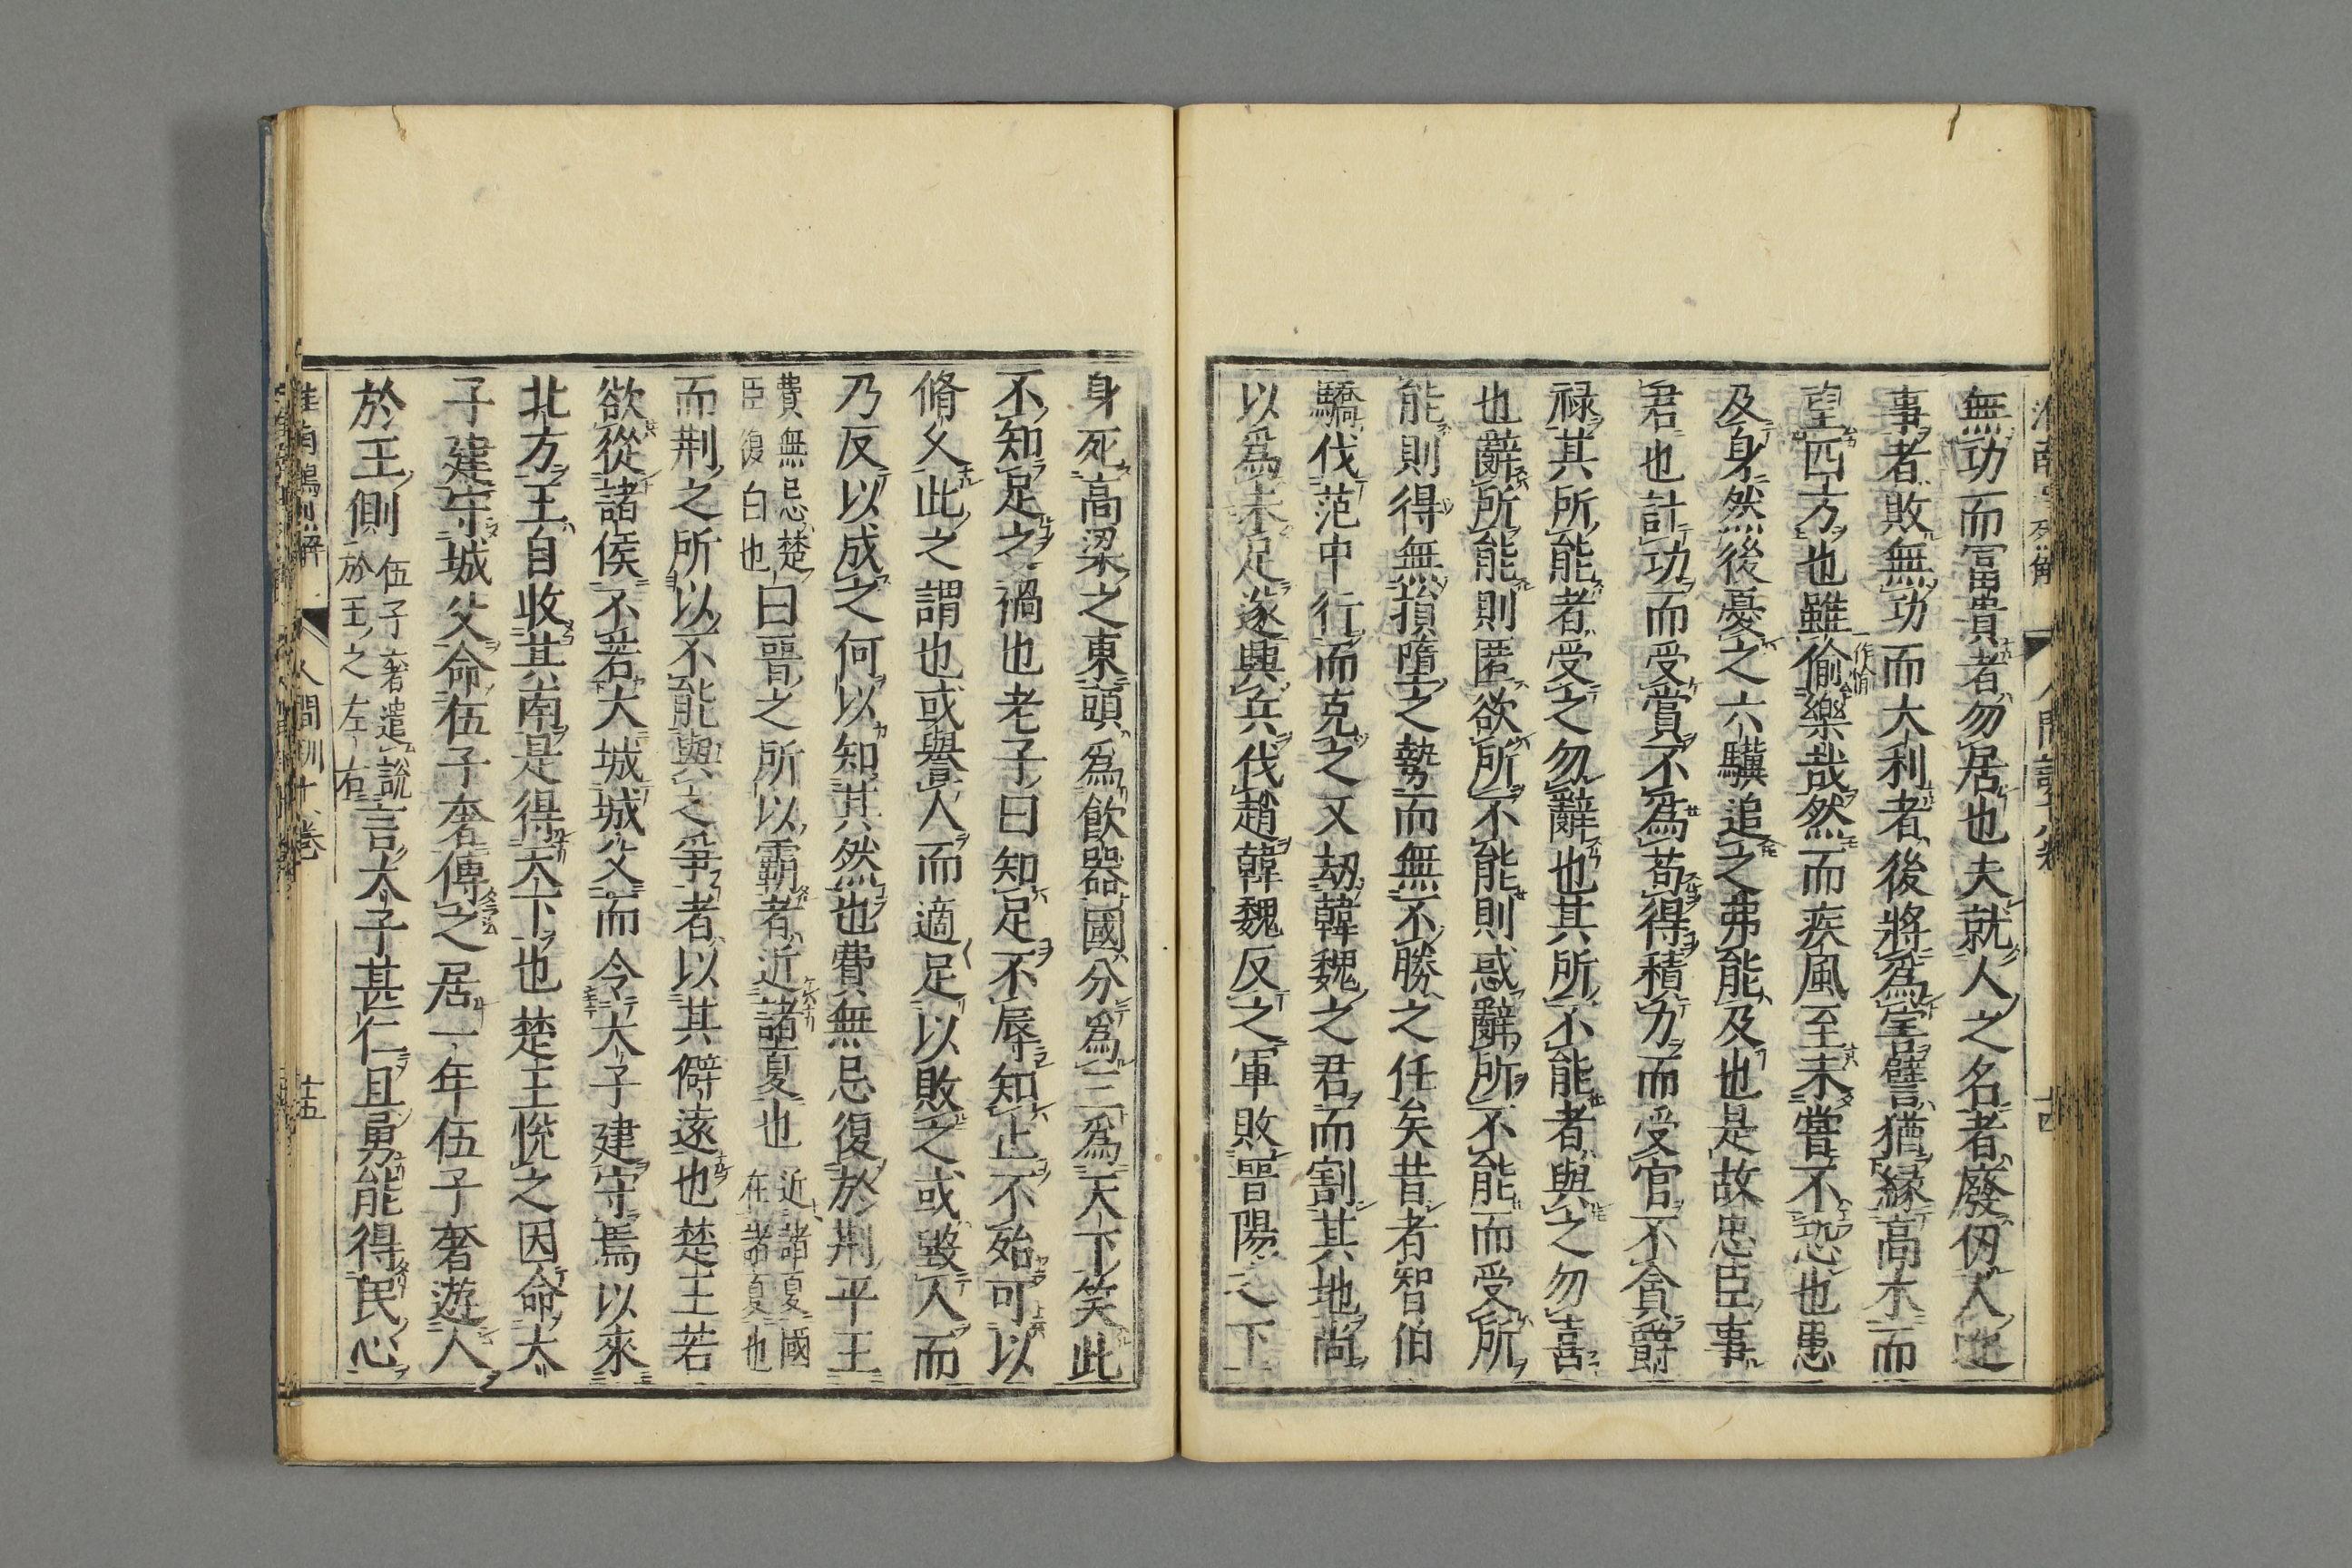 無功而富貴者勿居也夫就人之名者廢仞人之
事者敗無功而大利者後將爲害譬猶緣高木而
望四方也雖偷一作愉樂哉然而疾風至未嘗不恐也患
及身然後憂之六驥追之弗能及也是故忠臣事
君也計功而受賞不爲苟得積力而受官不貪爵
祿其所能者受之勿辭也其所不能者與之勿喜
也辭所能則匿欲所不能則惑辭所不能而受所
能則得無損墮之勢而無不勝之任矣昔者智伯
驕伐范中行而克之又劫韓魏之君而割其地尚
以爲未足遂興兵伐趙韓魏反之軍敗晉陽之下
身死高梁之東頭爲飲器國分爲三爲天下笑此
不知足之禍也老子曰知足不辱知止不殆可以
脩久此之謂也或譽人而適足以敗之或毀人而
乃反以成之何以知其然也費無忌復於荆平王
費無忌楚臣復白也曰晉之所以霸者近諸夏也近諸夏國在諸夏也
而荆之所以不能與之爭者以其僻遠也楚王若
欲從諸侯不若大城城父而令大子建守焉以來
北方王自收其南是得天下也楚王悅之因命大
子建守城父命伍子奢傅之居一年伍子奢遊人
於王側伍子奢遣說於王之左右言太子甚仁且勇能得民心
淮南鴻烈解 人間訓十八卷 十五